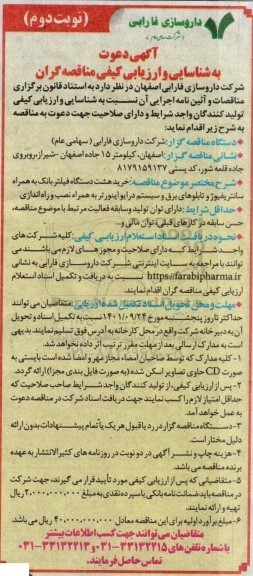 (نوبت دوم)
داروسازی فارابی
(شرکت سهامی عام)
آگهی دعوت
به شناسایی و ارزیابی کیفی مناقصه گران
شرکت داروسازی فارابی اصفهان در نظر دارد به استناد قانون برگزاری
مناقصات و آئین نامه اجرایی آن نسبت به شناسایی و ارزیابی کیفی
تولید کنندگان واجد شرایط و دارای صلاحیت جهت دعوت به مناقصه
به شرح زیر اقدام نماید:
دستگاه مناقصه گزار: شرکت داروسازی فارابی (سهامی عام)
نشانی مناقصه گزار: اصفهان، کیلومتر ۱۵ جاده اصفهان -شیراز روبروی
جاده قلعه شور، کد پستی ۸۱۷۹۱۵۹۱۳۷
شرح مختصر موضوع مناقصه: خرید هشت دستگاه فیلتر بانک به همراه
سانتریفیوژ و تابلوهای برق و سیستم درایو اینورتر به همراه نصب و راه اندازی
حداقل شرایط: دارای توان تولید و سابقه فعالیت مرتبط با موضوع مناقصه،
حسن سابقه در کارهای قبلی، توان مالی و...
نحوه دریافت اسناد استعلام ارزیابی کیفی: کلیه شرکت های
واجد شرایط که دارای صلاحیت و مجوزهای لازم می باشند می
توانند با مراجعه به سایت اینترنتی شرکت داروسازی فارابی به نشانی
https://farabipharma.ir نسبت به دریافت و تکمیل اسناد استعلام
ارزیابی کیفی مناقصه گران اقدام نمایند.
مهلت و محل تحویل اسناد تکمیل شده ارزیابی: متقاضیان می توانند
حداکثر تا روز پنجشنبه مورخ ۱۴۰۱/۰۹/۲۴ نسبت به تکمیل اسناد و تحویل
آن به دبیرخانه شرکت واقع در محل کارخانه به آدرس فوق تسلیم نمایند. بدیهی
است به مدارک ارسالی بعد از مهلت مقرر ترتیب اثر داده نخواهد شد.
۱- کلیه مدارک که توسط صاحبان امضاء مجاز مهر و امضا شده است بایستی به
صورت CD حاوی تصاویر اسکن شده (به صورت فایل بندی مجزا) ارائه گردد.
۲- پس از ارزیابی کیفی، از تولید کنندگان واجد شرایط صاحب صلاحیت که
حداقل امتیاز لازم را کسب نمایند جهت دریافت اسناد شرکت در مناقصه دعوت
به عمل خواهد آمد.
۳- دستگاه مناقصه گزار در رد یا قبول هر یک یا تمام پیشنهادات بدون ارائه
دلیل مختار است.
۴- هزینه چاپ و نشر آگهی در دو نوبت در روزنامه های کثیر الانتشار به عهده
برنده مناقصه می باشد.
۵- متقاضیانی که پس از ارزیابی کیفی مورد تأیید قرار می گیرند، جهت شرکت
در مناقصه باید ضمانت نامه بانکی یا سپرده نقدی به مبلغ ۲.۰۰۰.۰۰۰.۰۰۰ ریال
تهیه و ارائه نمایند.
۶- مبلغ برآورد اولیه برای این مناقصه معادل ۴۰.۰۰۰.۰۰۰.۰۰۰ ریال می باشد.
متقاضیان می توانند جهت کسب اطلاعات بیشتر
با شماره تلفن های ۳۳۱۳۲۲۱۵-۰۳۱ و ۳۳۱۳۲۲۱۳-۰۳۱
تماس حاصل فرمایند.